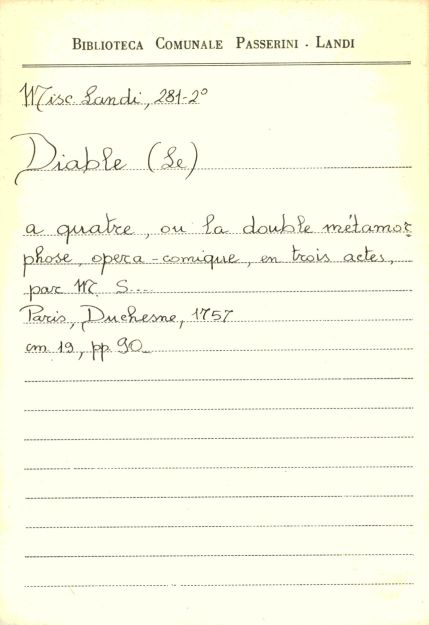 BIBLIOTECA COMUNALE PASSERINI - LANDI
Misc. Landi, 281-2°
Diable (Le)
a quatre, ou la double métamor
phose, opera-comique, en trois actes,
par M. S...
Paris, Duchesne, 1757
cm 19, pp 90_